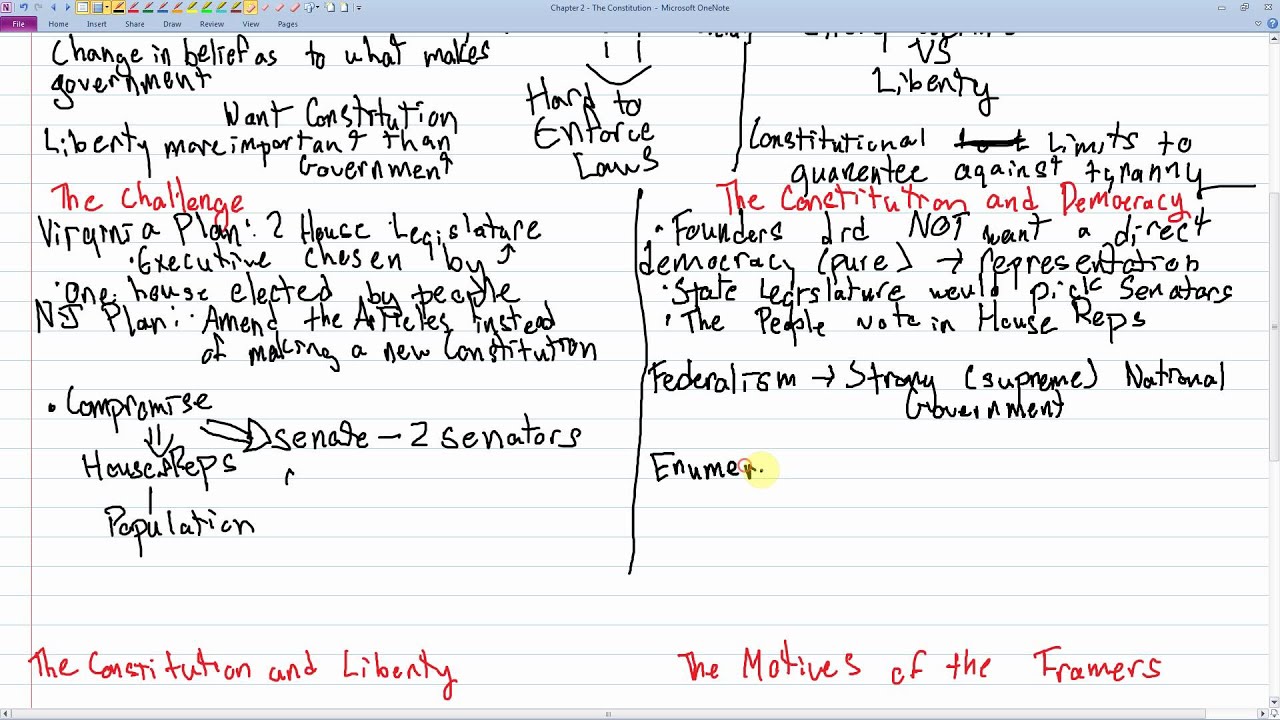 Chapter 2 - The Constitution - Microsoft OneNote
File Home Insert Share Draw Review View Pages
Change in belief as to what makes
government
Want Constitution
Liberty more important than
Government
Hard to
Enforce
Laws
VS
Liberty
Constitutional Limits to
guarentee against tyranny
The Challenge
Virginia Plan: 2 House Legislature
• Executive chosen by
• One house elected by people
NJ Plan: • Amend the Articles instead
of making a new Constitution
• Compromise
Senate - 2 senators
House Reps
Population
The Constitution and Democracy
• Founders did NOT want a direct
democracy (pure) → representation
• State Legislature would pick Senators
• The People vote in House Reps
Federalism → Strong (supreme) National
Government
Enumer
The Constitution and Liberty
The Motives of the Framers